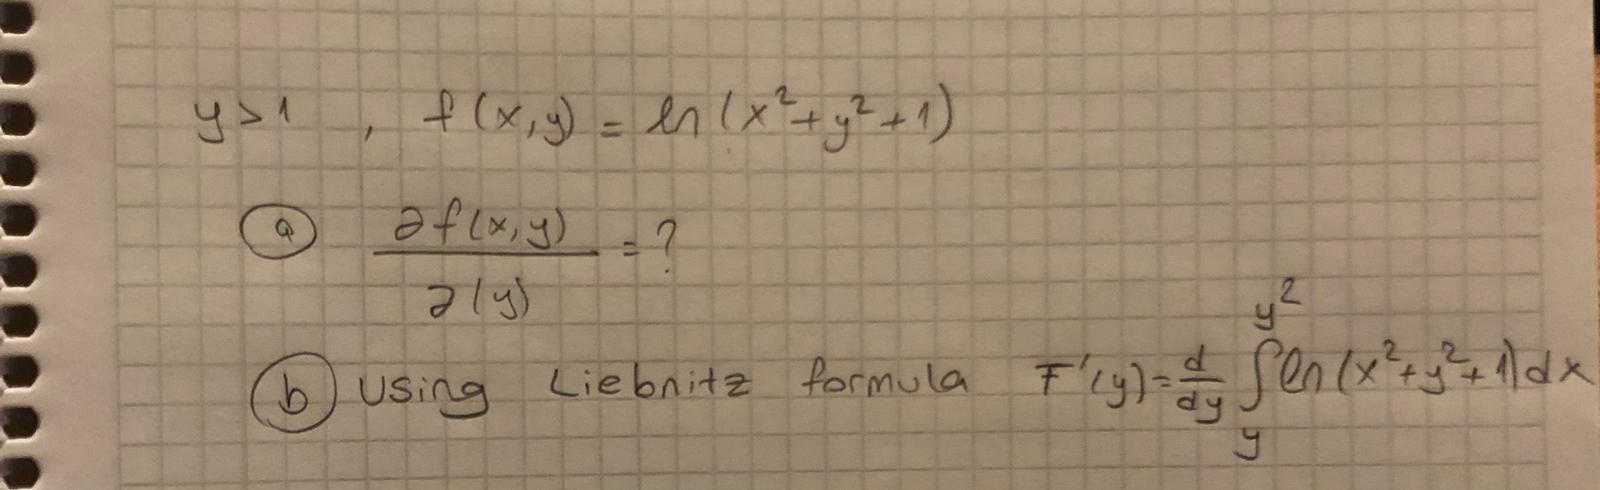 y>1 , f(x,y) = ln(x²+y²+1)
a ∂f(x,y)/∂(y) = ?
b Using Liebnitz formula F'(y) = d/dy ∫_y^{y²} ln(x²+y²+1)dx